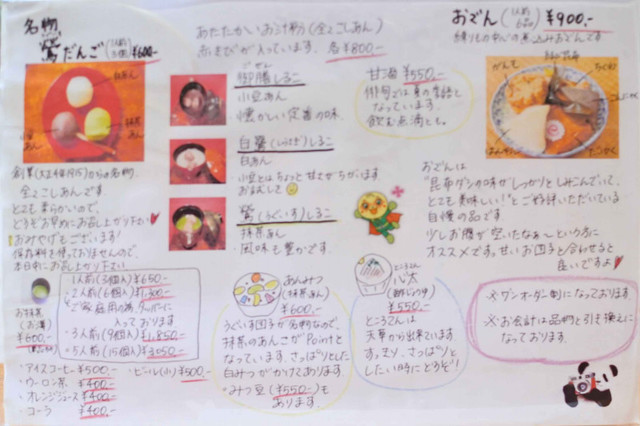 名物
鶯だんご (1人前 3個) ¥600-
白あん
小豆あん
抹茶あん
創業(大正4年4月15日)からの名物
全てこしあんです
とても柔らかいので、
どうぞお早めにお召し上がり下さい
おみやげもございます!
保存料を使っておりませんので、
本日中にお召し上がり下さい
・1人前(3個入)¥650-
・2人前(6個入)¥1,300-
ご家庭用の為、タッパーに
入っております
・3人前(9個入)¥1,850-
・5人前(15個入)¥3,050-
お抹茶
(お薄)
¥600-
・アイスコーヒー ¥500-
・ウーロン茶 ¥400-
・オレンジジュース ¥400-
・コーラ ¥400-
・ビール(小)¥500-
あたたかいお汁粉(全てこしあん)
赤えびが入っています。各¥800-
御膳しるこ
ごぜん
小豆あん
懐かしい定番の味
白鶯(しらさぎ)しるこ
白あん
小豆とはちょっと甘さがちがいます
おためしを
鶯(うぐいす)しるこ
抹茶あん
風味も豊かです。
甘酒 ¥550-
俳句では夏の季語と
なっています。
飲む点滴とも。
あんみつ
(抹茶あん)
¥600-
うぐいす団子が名物なので、
抹茶のあんこがPointと
なっています。さっぱりとした
白みつがかけてあります
・みつ豆(¥550-)も
あります。
ところてん
心太
(酢じょうゆ)
¥550-
ところてんは
天草から出来ています
すっきり、さっぱりと
したい時にどうぞ!!
おでん (1人前 6品) ¥900-
練りもの中心の煮込みおでんです
がんも
結び昆布
ちくわ
こんにゃく
おでんは
"昆布ダシの味がしっかりとしみこんでいて、
とても美味しい!"とご好評いただいている
自慢の品です
少しお腹が空いたなぁ~という方に
オススメです。甘いお団子と合わせると
良いですよ
※ワンオーダー制になっております
※お会計は品物と引き換えに
なっております。